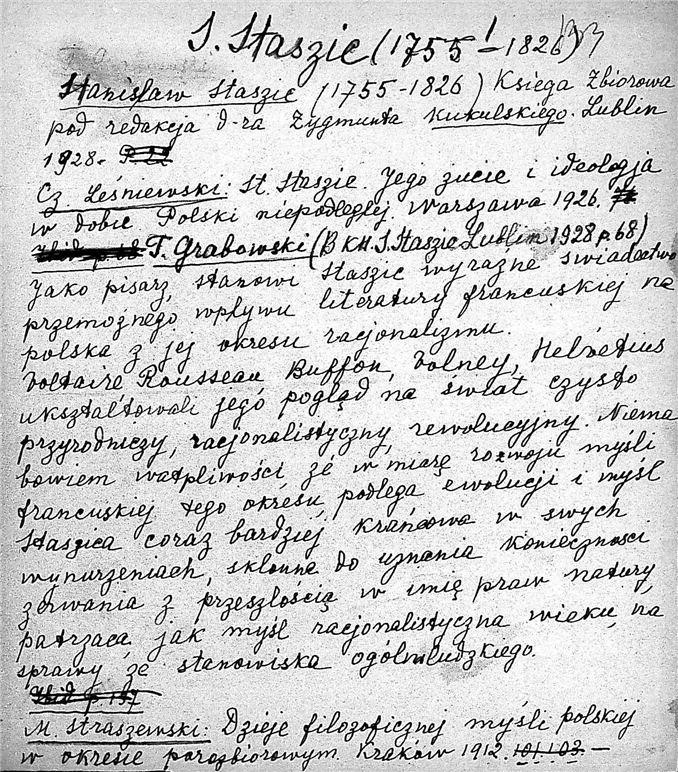 S. Staszic (1755 - 1826)
Stanisław Staszic (1755-1826) Księga Zbiorowa
pod redakcja d-ra Zygmunta Kukulskiego. Lublin
1928-
Cz. Leśniewski: St. Staszic. Jego życie i ideologja
w dobie Polski niepodległej. Warszawa 1926.
Ibid p. 68 T. Grabowski (B KH. S. Staszic Lublin 1928 p. 68)
Jako pisarz, stanowi Staszic wyraźne świadectwo
przemożnego wpływu literatury francuskiej na
polska z jej okresu racjonalizmu.
Voltaire Rousseau Buffon, Volney, Helvetius
ukształtowali jego pogląd na świat czysto
przyrodniczy, racjonalistyczny, rewolucyjny. Niema
bowiem watpliwości, że w miarę rozwoju myśli
francuskiej tego okresu, podlega ewolucji i myśl
Staszica coraz bardziej krańcowa w swych
wynurzeniach, skłonna do uznania konieczności
zerwania z przeszłością w imię praw natury
patrząca, jak myśl racjonalistyczna wieku, na
sprawy ze stanowiska ogólnoludzkiego.
Ibid p. 137
M. Straszewski: Dzieje filozoficznej myśli polskiej
w okresie porozbiorowym. Kraków 1912. 101.102. —